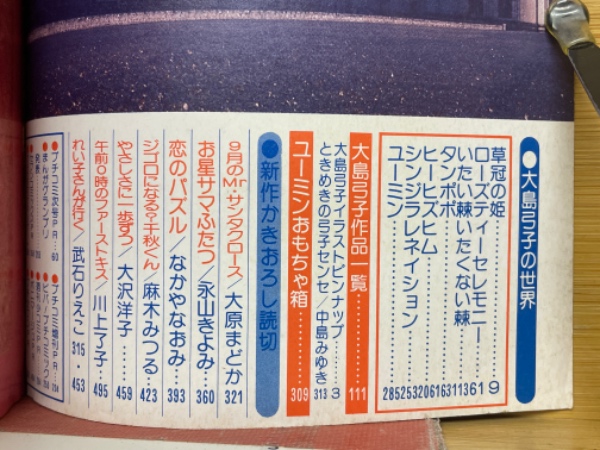 ●大島弓子の世界
草冠の姫 9
ローズティーセレモニー 61
いたい棘いたくない棘 113
タンポポ 163
ヒーヒズヒム 206
シンジラレネイション 253
ユーミン 285
大島弓子作品一覧 111
大島弓子イラストピンナップ…3
ときめきの弓子センセ/中島みゆき 313
ユーミンおもちゃ箱 309
●新作かきおろし読切
9月のMr.サンタクロース/大原まどか 321
お星サマふたつ/永山きよみ… 360
恋のパズル/なかやなおみ… 393
ジゴロになる?千秋くん/麻木みつる… 423
やさしさに一歩ずつ/大沢洋子… 459
午前0時のファーストキス/川上了子… 495
れい子さんが行く/武石りえこ 315・453
●プチコミ次号PR…60
●まんがグランプリ
発表
●プチコミ増刊PR
●ビバ!プチコミック